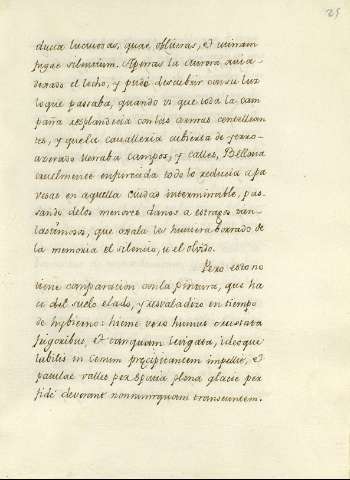 25
ducia lucuosas, quae obliteras, & utinam
fugae silentium. Apenas la Aurora avia
dexado el lecho, y pudo descubrir con su luz
lo que passaba, quando vi que toda la cam
paña resplandecia con las armas centellean
tes, y que la cavalleria cubierta de yerro
azerado llenaba campos, y calles, Bellona
cruelmente enfurecida todo lo reducia a pa
vesas en aquella ciudad interminable, pas
sando de los menores daños a estragos tan
lastimosos, que oxala les huviera borrado de
la memoria el silencio, u el olvido.
Pero esto no
tiene comparacion con la pintura, que ha
ce del suelo elado, y resvaladizo en tiempo
de hybierno: hieme vero humus crustata
frigoribus, & tanquam levigata, ideoque
labilis in incessum praecipitantem impellit, &
patulae valles per spatia plana glacie per
fidae devorant nonnunquam transeuntem.